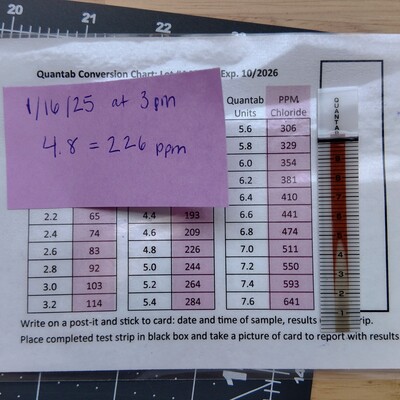 20 21 22
Quantab Conversion Chart: Lot Exp. 10/2026
1/16/25 at 3 pm
4.8 = 226 ppm
Quantab Units PPM Chloride
5.6 306
5.8 329
6.0 354
6.2 381
6.4 410
2.2 65 4.4 193 6.6 441
2.4 74 4.6 209 6.8 474
2.6 83 4.8 226 7.0 511
2.8 92 5.0 244 7.2 550
3.0 103 5.2 264 7.4 593
3.2 114 5.4 284 7.6 641
QUANTAB
9
8
7
6
5
4
3
2
1
Write on a post-it and stick to card: date and time of sample, results rip.
Place completed test strip in black box and take a picture of card to report with results